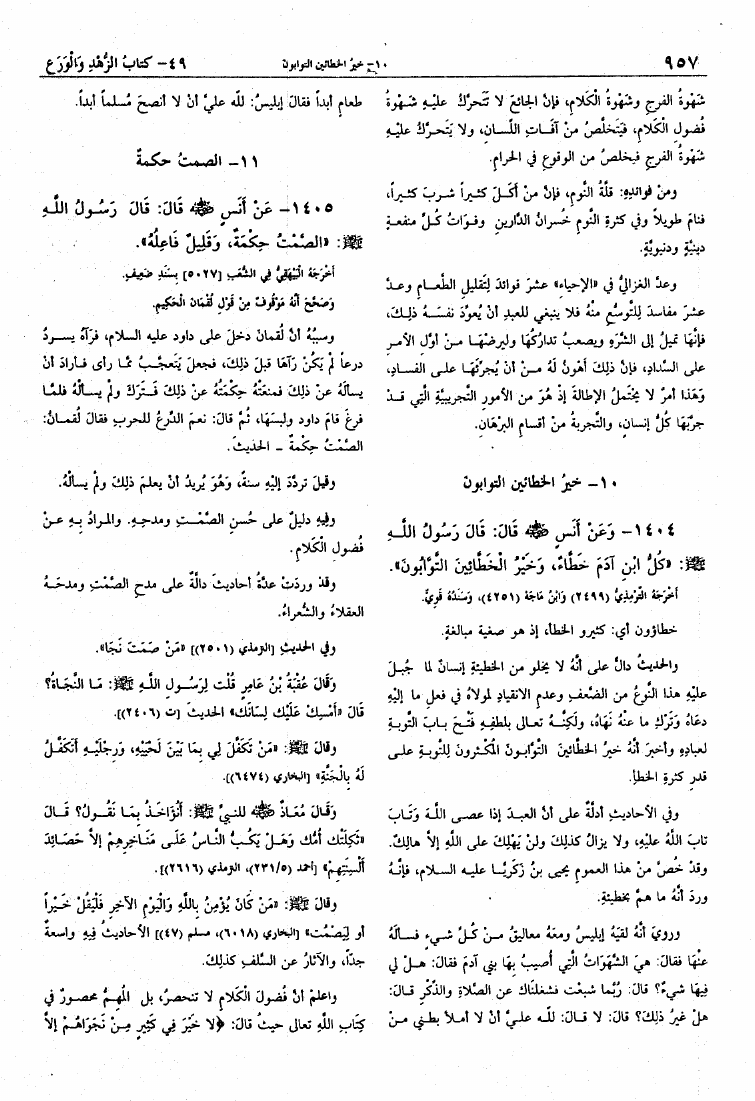 ٩٥٧
١٠- خيرُ الخطائين التوابون
٤٩- كتابُ الزُّهْدِ وَالْوَرَعِ
شهوةُ الفرجِ وشهوةُ الكلامِ، فإنَّ الجائعَ لا تتحركُ عليهِ شهوةُ
فُضولِ الكلامِ، فيتخلصُ منْ آفاتِ اللسانِ، ولا يتحركُ عليهِ
شهوةُ الفرجِ فيخلصُ من الوقوعِ في الحرامِ.
ومنْ فوائدِهِ: قلةُ النومِ، فإنَّ منْ أكلَ كثيراً شربَ كثيراً،
فنامَ طويلاً وفي كثرةِ النومِ خُسرانُ الدَّارينِ وفواتُ كُلِّ منفعةٍ
دينيةٍ ودنيويَّةٍ.
وعدَّ الغزاليُّ في «الإحياءِ» عشرَ فوائدَ لِتقليلِ الطَّعامِ وعدَّ
عشرَ مفاسدَ لِلتوسُّعِ منْهُ فلا ينبغي للعبدِ أنْ يُعوِّدَ نفسَهُ ذلِكَ،
فإنَّها تميلُ إلى الشَّرَهِ ويصعبُ تداركُها وليرضْهَا منْ أوَّلِ الأمرِ
على السَّدادِ، فإنَّ ذلِكَ أهْونُ لَهُ منْ أنْ يُجرِّئَها على الفسادِ،
وَهَذا أمرٌ لا يحْتملُ الإطالةَ إذْ هُوَ من الأمورِ التجريبيَّةِ الَّتي قدْ
جرَّبَها كُلُّ إنسانٍ، والتَّجربةُ منْ أقسامِ البُرهانِ.
١٠- خيرُ الخطائين التوابون
١٤٠٤- وَعَنْ أَنَسٍ ﷺ قَالَ: قَالَ رَسُولُ اللَّهِ
ﷺ: «كُلُّ ابْنِ آدَمَ خَطَّاءٌ، وَخَيْرُ الْخَطَّائِينَ التَّوَّابُونَ».
أَخْرَجَهُ التِّرْمِذِيُّ (٢٤٩٩) وَابْنُ مَاجَهْ (٤٢٥١)، وَسَنَدُهُ قَوِيٌّ.
خطاؤون أي: كثيرو الخطأِ، إذ هو صفية مبالغةٍ.
والحديثُ دالٌّ على أنَّهُ لا يخلو من الخطيئةِ إنسانٌ لما جُبلَ
عليهِ هذا النَّوعُ من الضَّعفِ وعدمِ الانقيادِ لمولاهُ في فعلِ ما إليْهِ
دعَاهُ وَتَرْكِ ما عنْهُ نهَاهُ، ولَكِنَّهُ تعالى بلطفِهِ فتَحَ بابَ التَّوبةِ
لعبادِهِ وأخبرَ أنَّهُ خيرُ الخطَّائينَ التَّوابُونَ المُكْثِرونَ لِلتَّوبةِ على
قدرِ كثرةِ الخطإِ.
وفي الأحاديثِ أدلَّةٌ على أنَّ العبدَ إذا عصى اللَّهَ وَتَابَ
تابَ اللَّهُ عليْهِ، ولا يزالُ كذلِكَ ولنْ يَهْلِكَ على اللَّهِ إلَّا هالِكٌ.
وقدْ خُصَّ منْ هذا العمومِ يحيى بنُ زكريَّا عليهِ السلام، فإنَّهُ
وردَ أنَّهُ ما همَّ بخطيئةٍ.
ورويَ أنَّهُ لقيَهُ إبليسُ ومعَهُ معاليقُ منْ كُلِّ شيءٍ فسألَهُ
عنْهَا فقالَ: هيَ الشَّهَوَاتُ الَّتي أُصيبُ بِهَا بني آدمَ فقالَ: هلْ لي
فِيهَا شيءٌ؟ قالَ: رُبَّما شبعْتَ فشغلناكَ عن الصَّلاةِ والذِّكْرِ قالَ:
هلْ غيرُ ذلِكَ؟ قالَ: لا قالَ: للَّهِ عليَّ أنْ لا أملأَ بطني منْ
طعامٍ أبداً فقالَ إبليسُ: للهِ عليَّ أنْ لا أنصحَ مُسلماً أبداً.
١١- الصمتُ حكمةٌ
١٤٠٥- عَنْ أَنَسٍ ﷺ قَالَ: قَالَ رَسُولُ اللَّهِ
ﷺ: «الصَّمْتُ حِكْمَةٌ، وَقَلِيلٌ فَاعِلُهُ».
أَخْرَجَهُ الْبَيْهَقِيُّ فِي الشُّعَبِ [٥٠٢٧] بِسَنَدٍ ضَعِيفٍ.
وَصَحَّحَ أَنَّهُ مَوْقُوفٌ مِنْ قَوْلِ لُقْمَانَ الْحَكِيمِ.
وسببُهُ أنَّ لُقمانَ دخلَ على داود عليه السلام، فرآهُ يسردُ
درعاً لمْ يكُنْ رآهَا قبلَ ذلِكَ، فجعلَ يتعجَّبُ مما رأى فأرادَ أنْ
يسألَهُ عنْ ذلِكَ فمنعتْهُ حِكْمتُهُ عنْ ذلِكَ فتركَ ولمْ يسألْهُ فلمَّا
فرغَ قامَ داود ولبسَهَا، ثُمَّ قالَ: نعمَ الدِّرْعُ للحربِ فقالَ لُقمانُ:
الصَّمْتُ حِكْمةٌ - الحديثَ.
وقيلَ تردَّدَ إليْهِ سنةً، وهُوَ يُريدُ أنْ يعلمَ ذلِكَ ولمْ يسألْهُ.
وفيهِ دليلٌ على حُسنِ الصَّمْتِ ومدحِهِ. والمرادُ بِهِ عنْ
فُضولِ الْكَلامِ.
وقدْ وردَتْ عدَّةُ أحاديثَ دالَّةٌ على مدحِ الصَّمْتِ ومدحَهُ
العقلاءُ والشُّعراءُ.
وفي الحديثِ [الترمذي (٢٥٠١)] «مَنْ صَمَتَ نَجَا».
وَقَالَ عُقبَةُ بْنُ عامرٍ قُلْت لِرَسُولِ اللَّهِ ﷺ: مَا النَّجَاةُ؟
قَالَ «أَمْسِكْ عَلَيْكَ لِسَانَك» الحديثَ [ت (٢٤٠٦)].
وقالَ ﷺ: «مَنْ تَكَفَّلَ لِي بِمَا بَيْنَ لَحْيَيْهِ، وَرِجْلَيْهِ أَتَكَفَّلُ
لَهُ بِالْجَنَّةِ» [البخاري (٦٤٧٤)].
وَقَالَ مُعَاذٌ ﷺ للنبيِّ ﷺ: أَنُؤَاخَذُ بِمَا نَقُولُ؟ قَالَ
«ثَكِلَتْك أُمُّك وَهَلْ يَكُبُّ النَّاسُ عَلَى مَنَاخِرِهِمْ إلاَّ حَصَائِدَ
أَلْسِنَتِهِمْ» [أحمد (٢٣١/٥)، الترمذي (٢٦١٦)].
وقالَ ﷺ: «مَنْ كَانَ يُؤْمِنُ بِاَللَّهِ وَالْيَوْمِ الآخِرِ فَلْيَقُلْ خَيْراً
أو لِيَصمُتْ» [البخاري (٦٠١٨)، مسلم (٤٧)] الأحاديثُ فِيهِ واسعةٌ
جدًّا، والآثارُ عن السَّلفِ كذلِكَ.
واعلمْ أنَّ فُضُولَ الكَلامِ لا تنحصرُ، بل المُهِمُّ محصورٌ في
كِتَابِ اللَّهِ تعالى حيثُ قالَ: ﴿لَا خَيْرَ فِي كَثِيرٍ مِنْ نَجْوَاهُمْ إلاَّ